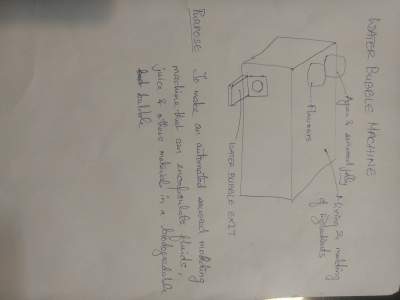 WATER BUBBLE MACHINE
Agar & seaweed jelly
Mixing & molding
of ingredients
Flavours
WATER BUBBLE EXIT
PURPOSE To make an automated seaweed molding
machine that can encapsulate fluids,
juice & others materials in a biodegradable
bubble